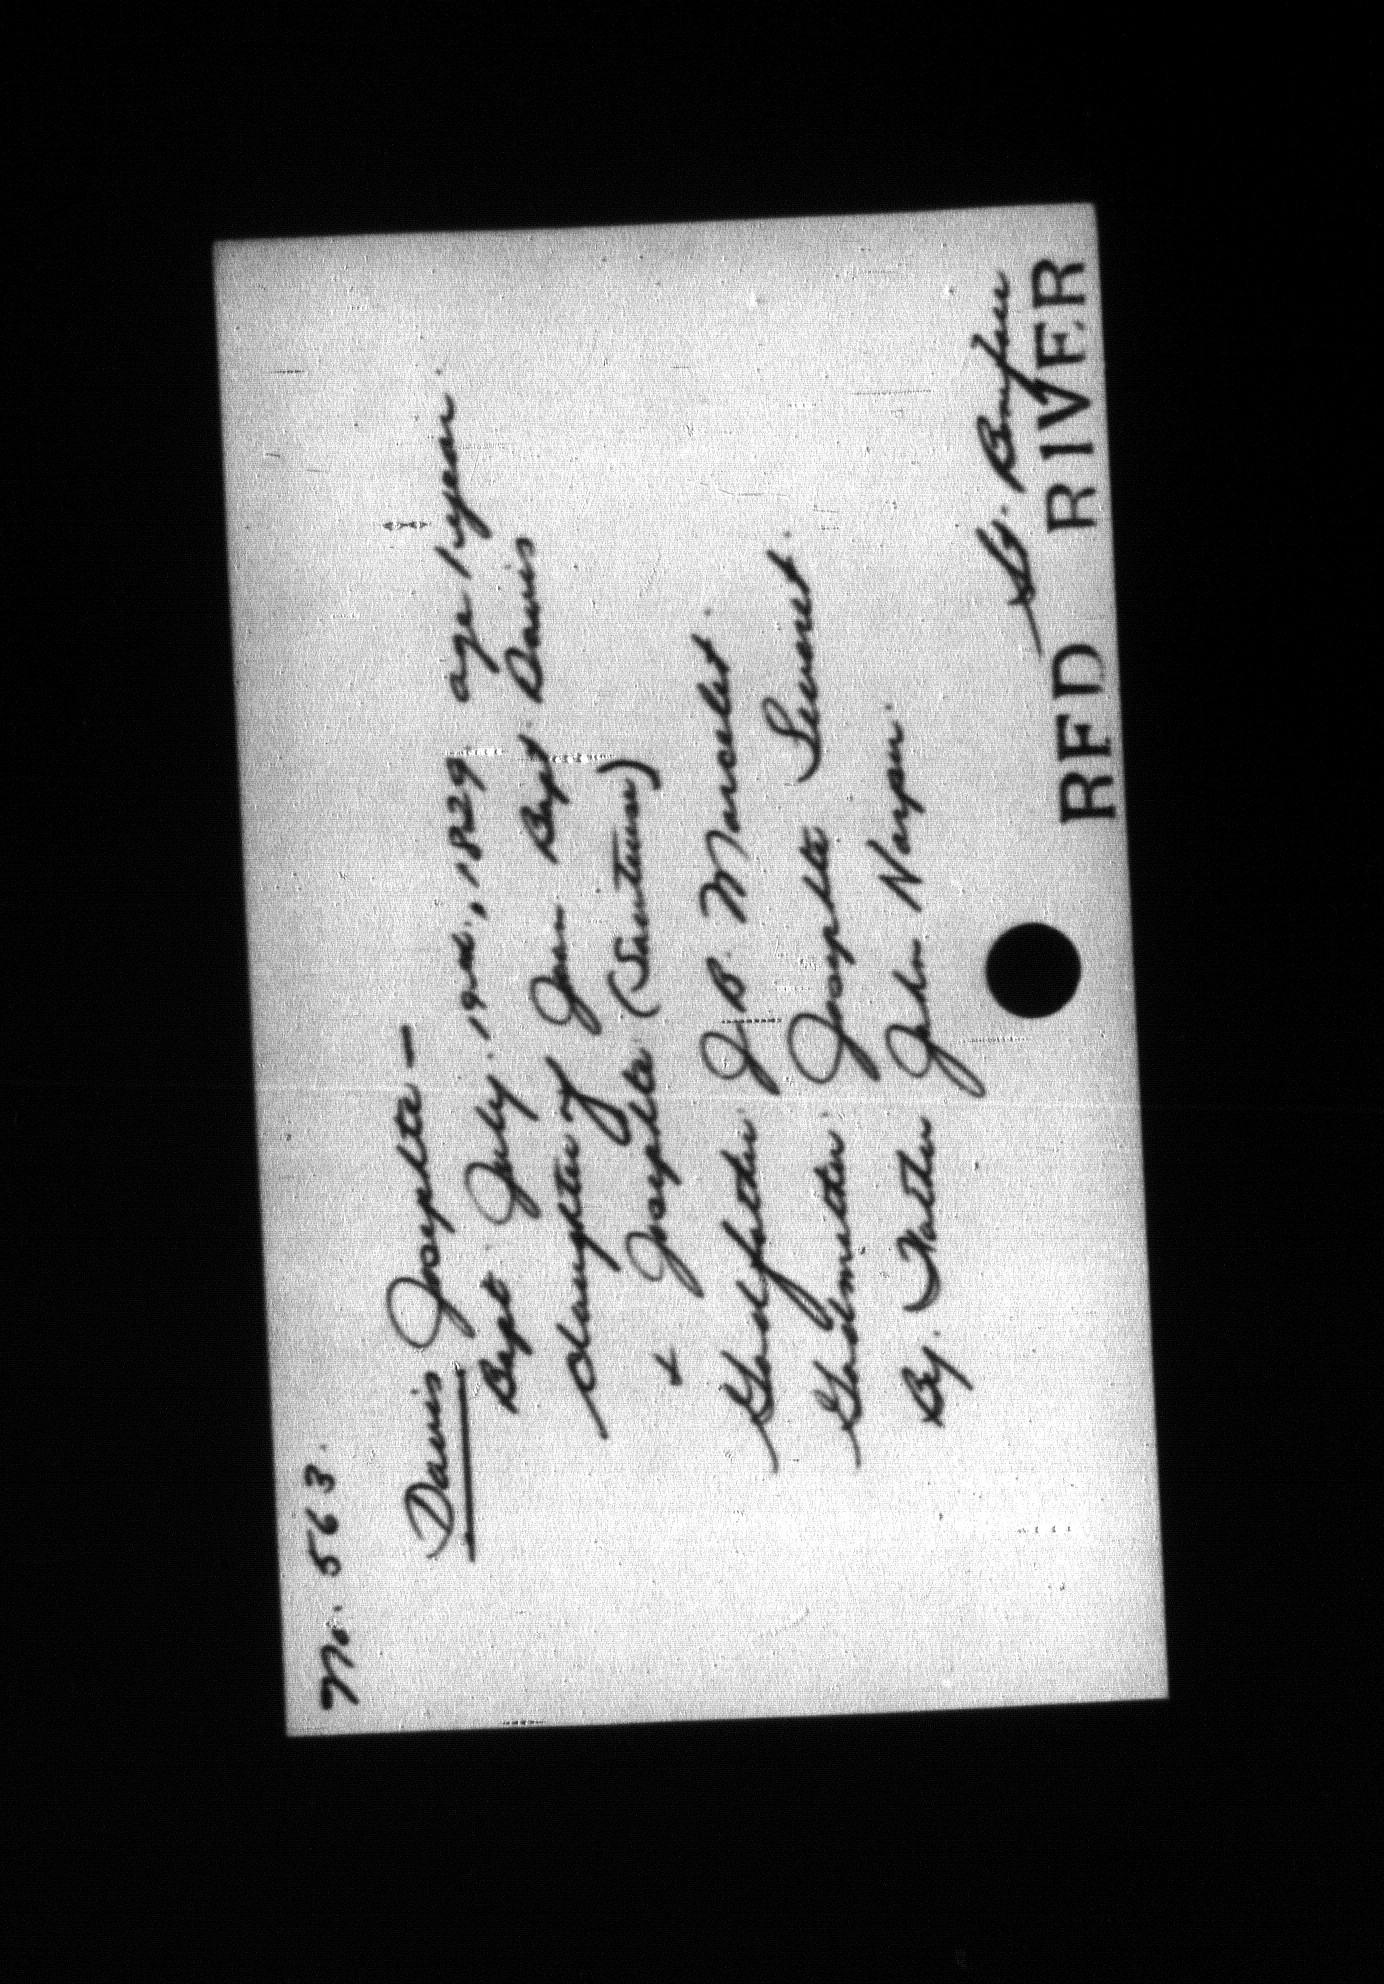 No. 563.
Davis Josephte -
Bapt. July. 19th., 1829 age 1 year.
daughter of Jean Bapt. Davis
& Josephte (Sauteuse)
Godfather J.B. Marcelet.
Godmother Josephte
By. Father John Harper.
St. Boniface
RED RIVER